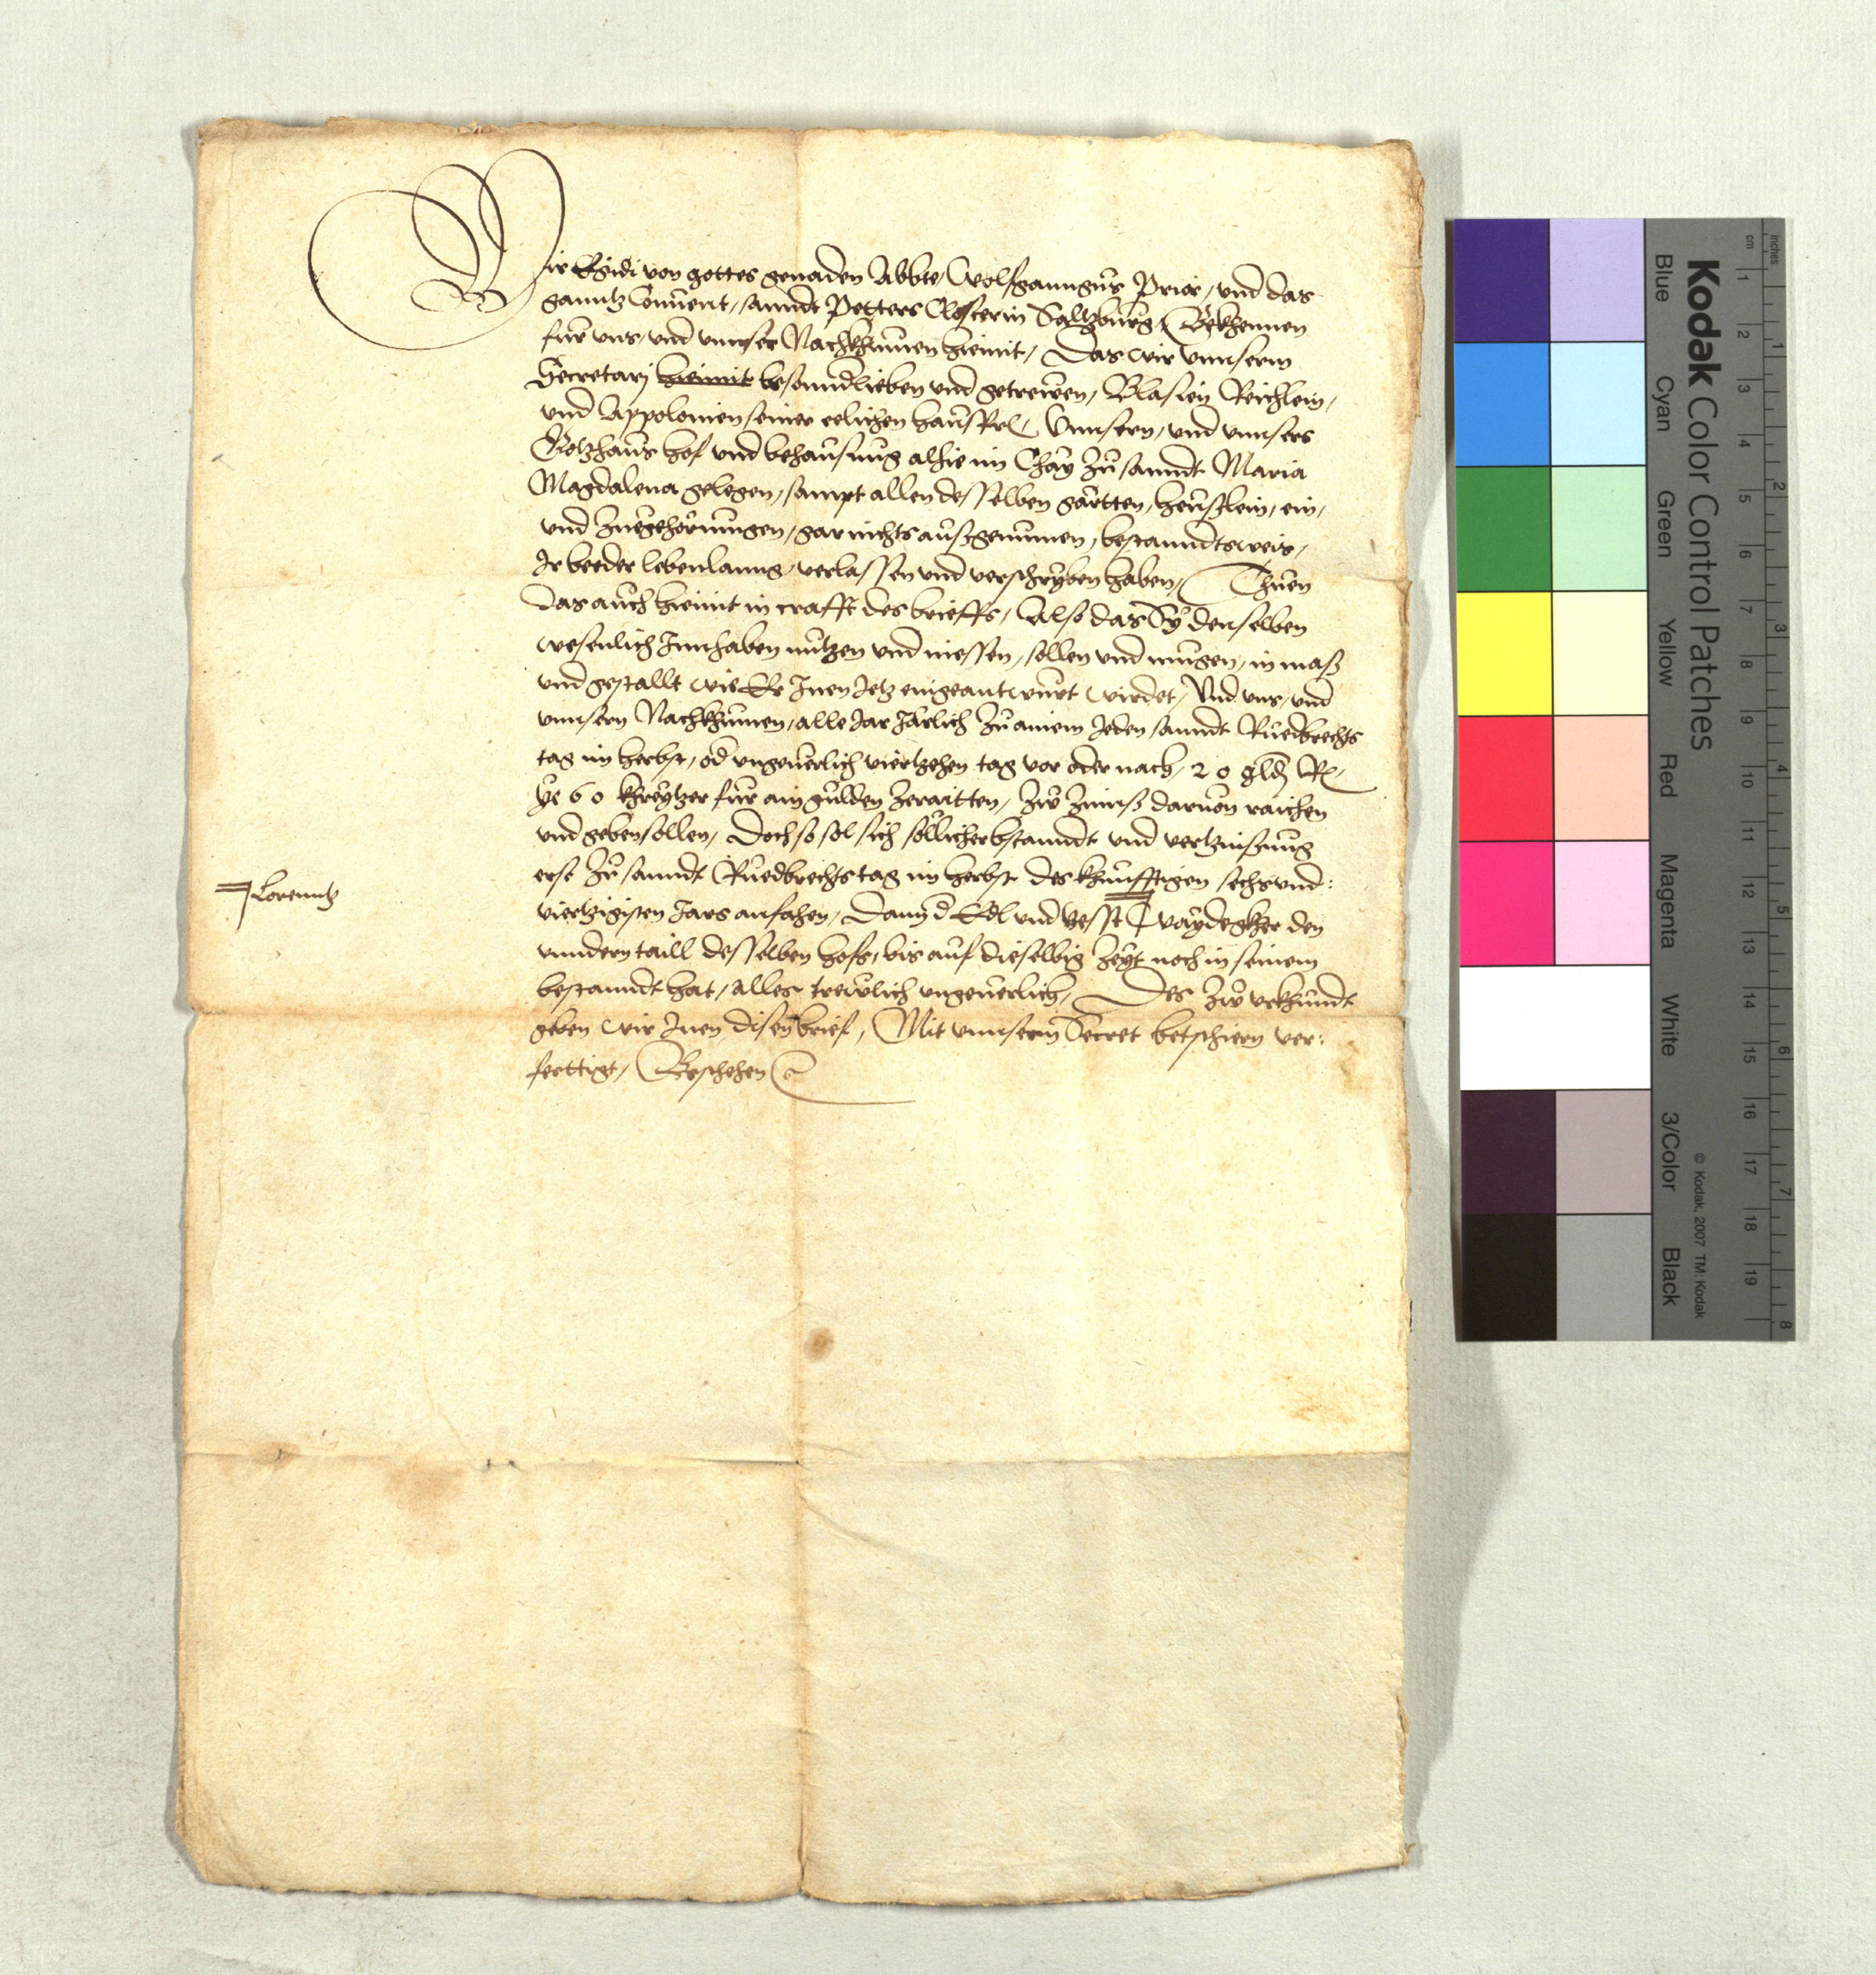 Wir Egidi von gottes genaden Abbte, Wolfganngus Prior, und das
ganntz Convent, sanndt Petters Closter in Saltzburg, Bekhennen
fur uns, und unnser Nachkhumen hiemit, Das wir unnserm
Secretarj hiemit besonnd lieben und getrewen, Blasien Reichlein,
und Appolonien seiner eelichen hausfrl, Unnsern, und unnsers
Gotzhaus hof und behausung alhie im Chay zu sanndt Maria
Magdalena gelegen, sampt allen desselben gartten, heußlein, ein,
und zuegehorungen, gar nichts außgenumen, bestanndtsweis,
Ir beeder lebenlanng, verlassen und verschryben haben, Thuen
das auch hiemit in crafft des brieffs, Also das Sy denselben
wesenlich Innhaben nutzen und niessen, sollen und mugen, in maß
und gestallt wie Er Inen Jetz eingeantwurt wirdet, Und uns, und
unnsern Nachkhumen, alle Jar Järlich zu ainem Jeden sanndt Ruedbrechts
tag im herbst, od ungeuerlich viertzehen tag vor oder nach, 20 gld R
ye 60 khreytzer fur ain gulden zeraitten, zw zinnß daruon raichen
und geben sollen, Doch so sol sich sollicher bstanndt und vertzinßung
erst zu sanndt Ruedbrechts tag im herbst des khunfftigen sechsund:
viertzigisten Jars anfahen, Dann d Edl und Vesst Waydegkher den
Lorenntz
unndern taill desselben hofs, bis auf dieselbig zeyt noch in seinem
bestanndt hat, alles trewlich ungeuerlich, Des zw urkhundt
geben wir Inen disen brief, Mit unnserm Secret betschiern ver:
fertigt, Beschehen
Kodak Color Control Patches
Blue Cyan Green Yellow Red Magenta White 3/Color Black
© Kodak, 2007 TM: Kodak
cm 1 2 3 4 5 6 7 8 9 10 11 12 13 14 15 16 17 18 19
inches 1 2 3 4 5 6 7 8